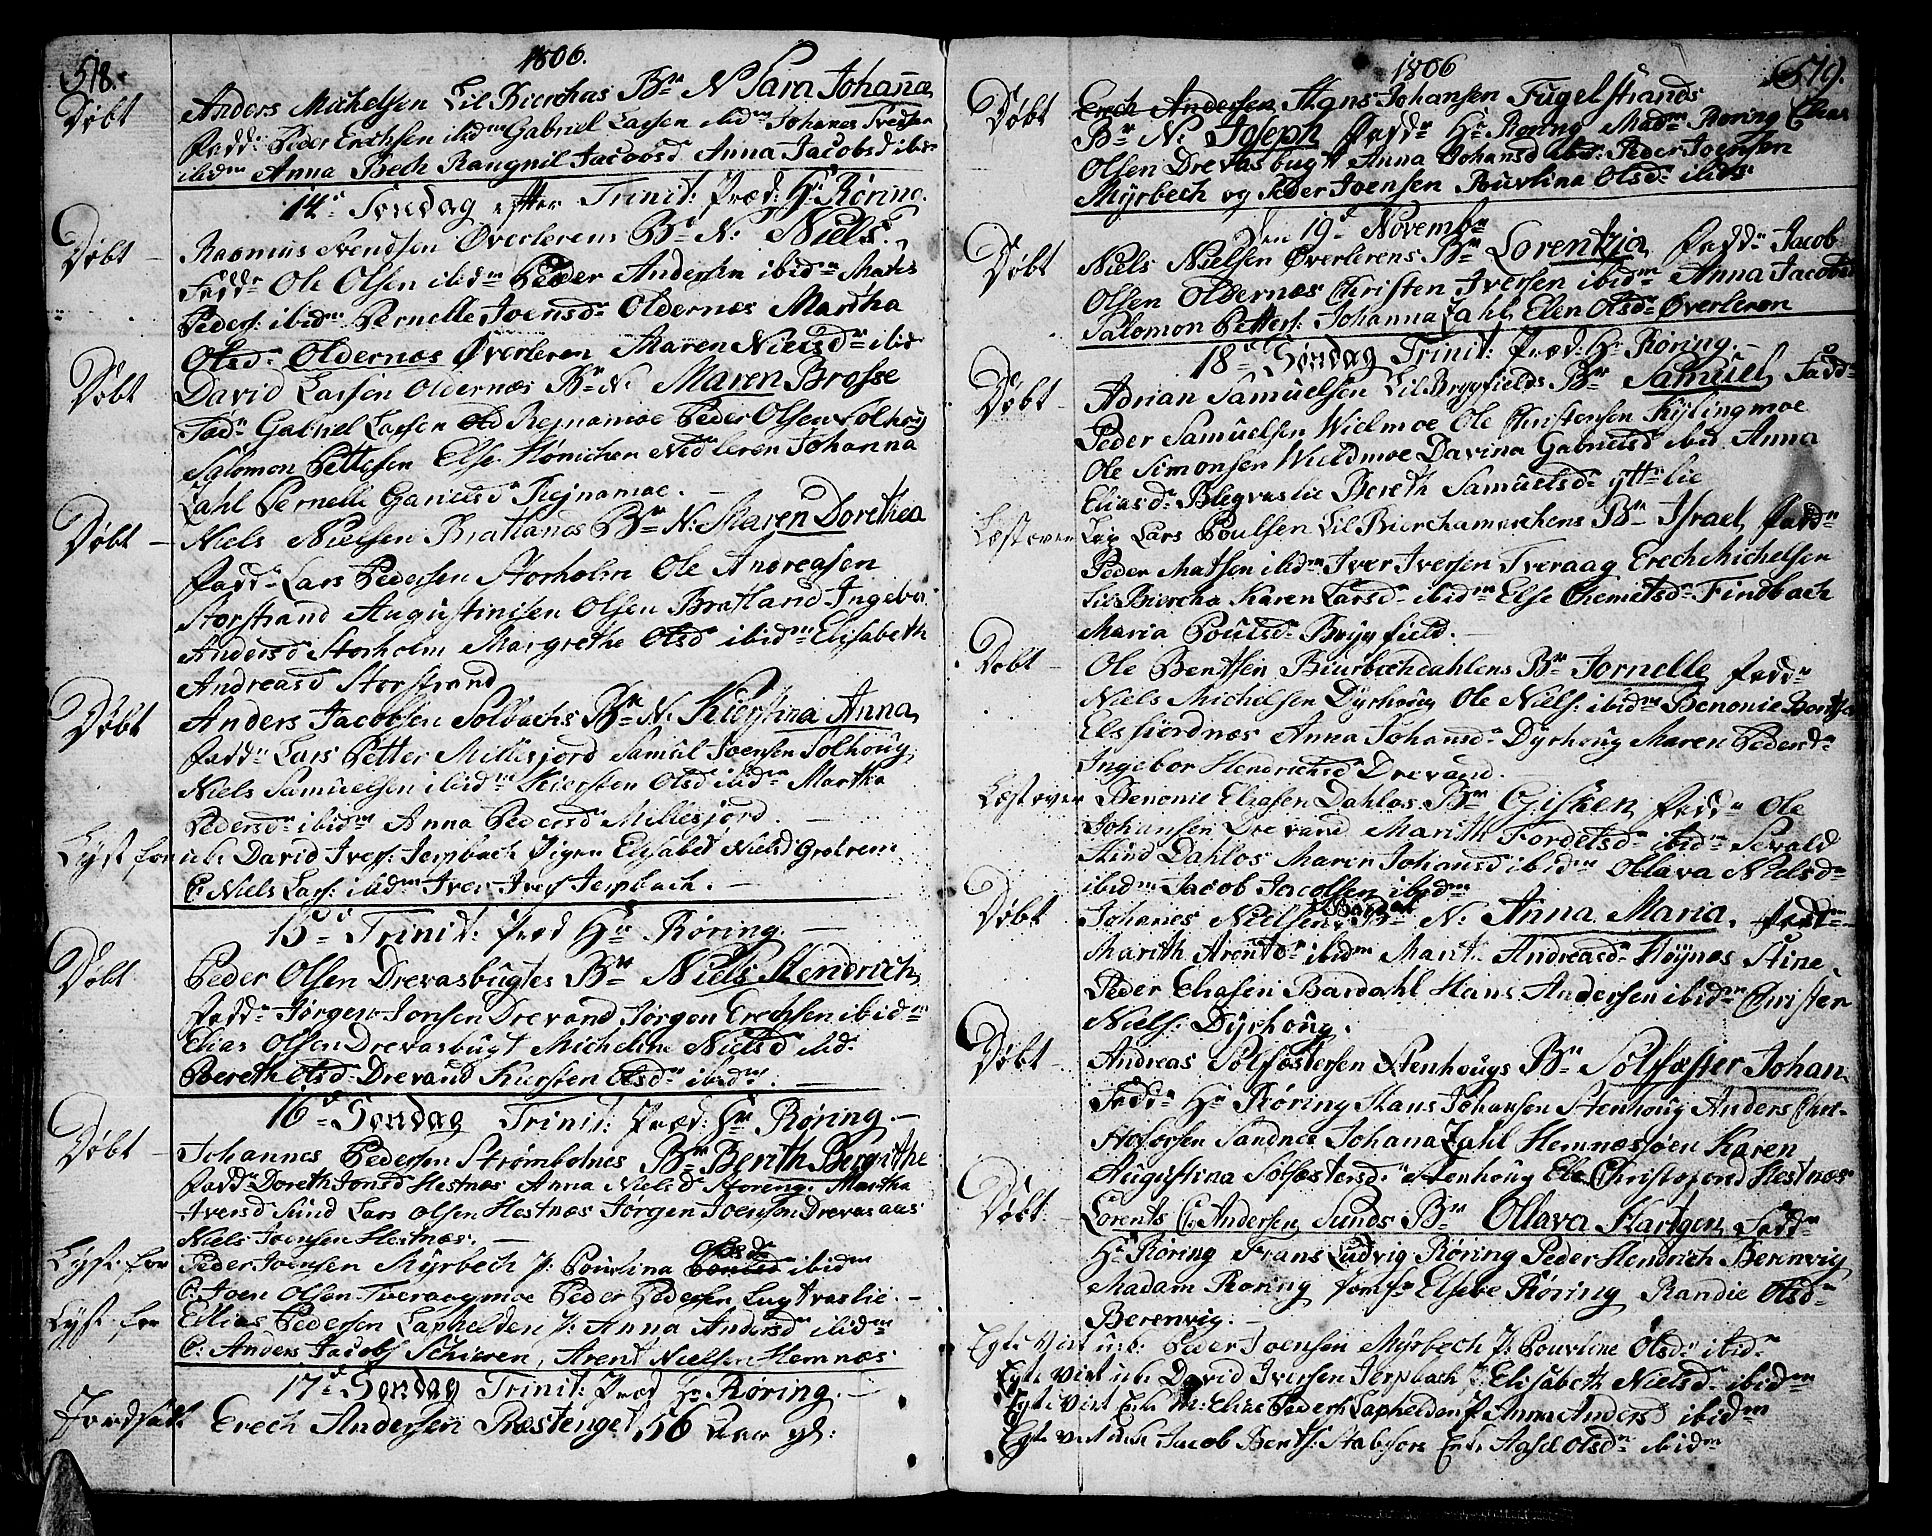 518.
1806.
Døbt Anders Michelsen Lil Bierchas Bn N Sara Johanna
Fadd: Peder Erichsen ibidm Gabriel Larsen ibidm Johanes
ibidm Anna Bech Rangnil Jacobsd Anna Jacobsd ibid
14d Søndag efter Trinit: Præd: Hr Røring.
Døbt Rasmus Svendsen Øverlerens Bn N: Niels.
Fadd Ole Olsen ibidm Peder Andersen ibidm Mates
Peders: ibidm Pernelle Joensd Oldernæs Martha
Olsd Oldernæs Øverleren Maren Nielsd ibid
Døbt David Larsen Oldernæs Bn N: Maren Brosse
Fad: Gabriel Larsen Rejnamoe Peder Olsen Solhoug
Salomon Pettersen Else Hønichen Nedleren Johanna
Zahl Pernelle Rejnamoe.
Døbt Niels Nielsen Bratlands Bn N: Maren Dorethea
Fadd Lars Pedersen Storholm Ole Andreasen
Storstrand Augustinusen Olsen Bratland Ingebor
Andersd Storholm Margrethe Olsd ibidm Elisabeth
Andreasd Storstrand
Døbt Anders Jacobsen Solbachs Bn N: Kierstina Anna
Fadd Lars Petter Millesjord Samuel Joensen Solhoug
Niels Samuelsen ibidm Kiersten Olsd ibidm Martha
Pedersd ibidm Anna Pedersd Millesjord.
Lyst for David Ivers: Jerpbach Pigen Elisabet Nielsd
C: Niels Lars: ibidm Iver Ivers Jerpbach.
15d Trinit: Præd Hr Røring.
Døbt Peder Olsen Drevasbugtes Bn Niels Hendrich
Fadd Jørgen Jonsen Drevand Jørgen Erechsen ibidm
Elias Olsen Drevasbugt Micheline Nielsd ibid.
Bereth Olsd Drevand Kiersten Olsd ibidm.
16d Søndag Trinit: Præd: Hr Røring.
Døbt Johannes Pedersen Strømbolnes Bn Berith Bergithe
Fadd Doreth Jonsd Hestnæs Anna Nielsd Storeng Martha
Iversd Sund Lars Olsen Hestnæs Jørgen Joensen Drevasaas
Niels Joensen Hestnæs.
Lyst for Peder Joensen Myrbech P: Pouvlina Olsd ibidm
C: Joen Olsen Tveraagmoe Peder Pedersen Lugtvaslie.
Lyst for Elias Pedersen Laphelden P: Anna Andersd ibidm
C: Anders Jacobs Schieren, Arent Nielsen Hemnæs
17d Søndag Trinit: Præd Hr Røring.
Jordfæst Erech Andersen Præstenget 56 Aar gl:
1806
519.
Døbt Erech Andersen Hans Johansen Fugelstrands
Bn N: Joseph Fadd Hr Røring Madm Røring Elias
Olsen Drevasbugt Anna Johansd ibid: Peder Joensen
Myrbech og Peder Joensen Pouvlina Olsd ibids
Den 19d Novembr
Døbt Niels Nielsen Øverlerens Bn Lorentzia Fadd Jacob
Olsen Oldernæs Christen Iversen ibidm Anna Jacobsd
Salomon Petters: Johanna Zahl, Elen Olsd Øverleren
18d Søndag Trinit: Præd: Hr Røring.
Døbt Adrian Samuelsen Lil Brygfields Bn Samuel, Fadd
Peder Samuelsen Wielmoe Ole Christensen Kylingmoe
Ole Simonsen Wieldmoe Davina Gabrielsd ibid Anna
Eliasd Blegvaslie Bereth Samuelsd ytterlie
Læst over Lars Poulsen Lil Bierchamarchens Bn Israel, Fadd
Peder Matsen ibidm Iver Iversen Tveraag Erech Michelsen
Lil Biercha Karen Larsd ibidm Else Findbach
Maria Poulsd Brygfield.
Døbt Ole Bentsen Biurbechdahlens Bn Jornelle Fadd
Niels Michelsen Dyrhoug Ole Niels: ibidm Benonie Bentsen
Elsfiordnæs Anna Johansd Dyrhoug Maren Pedersd
Ingebor Hendrichsd Drevand.
Læst over Benonie Eliasen Dahlas Bn Gisken Fadd Ole
Johansen Drevand Marith Fordelsd ibidm Sevald
Hind Dahlos Maren Johansd ibidm Ollava Nielsd
ibidm Jacob Jacobsen ibidm
Døbt Johanes Nielsen Bardal Bn N: Anna Maria. Fadd
Marith Arentsd ibidm Marit Andreasd Høynæs Stine
Peder Eliasen Bardahl Hans Andersen ibidm Christen
Niels: Dyrhoug.
Døbt Andreas Solfæstersen Stenhougs Bn Solfæster Johan
Fadd Hr Røring Hans Johansen Stenhoug Anders Chri-
stofersen Sandnæs Johana Zahl Hemnæsøen Karen
Augustina Solfæstersd Stenhoug Else Christofersd Hestnæs
Døbt Lorents C: Andersen Sunds Bn Ollava Hartgen, Fadd
Hr Røring Frans Ludvig Røring Peder Hendrich Berenvig
Madam Røring Jomfr Elsebe Røring Randie Olsd
Berenvig.
Egteviet unk: Peder Joensen Myrbech P: Pouvline Olsd ibid
Egteviet unk: David Iversen Jerpbach P: Elisabeth Nielsd ibidm
Egteviet Enk m: Elias Peders: Laphelden P: Anna Andersd ibidm
Egteviet unk Jacob Bents: Stabfors Enk: Aasel Olsd ibidm